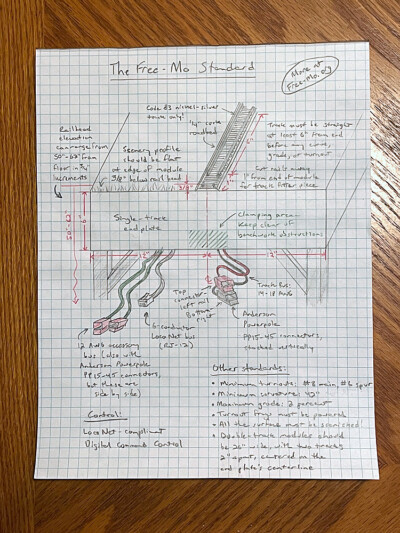 The Free-Mo Standard
More at
Free-Mo.org
Code 83 nickel-silver
track only!
1/4" cork
roadbed
6"
Track must be straight
at least 6" from end
before any curve,
grade, or turnout
Cut rails away
1" from end of module
for track fitter piece
Railhead
elevation
can range from
50"-62" from
floor in 3/4"
increments
Scenery profile
should be flat
at edge of module
3/8" below rail head
3/8"
1"
50"-62"
6"
Single-track
end plate
Clamping area-
keep clear of
benchwork obstructions
12"
24"
12"
Top
connector-
left rail
Bottom-
right
Track Bus:
14-18 AWG
Anderson
Powerpole
PP15-45 connectors,
stacked vertically
6-conductor
LocoNet bus
(RJ-12)
12 AWG accessory
bus (also with
Anderson Powerpole
PP15-45 connectors,
but these are
side by side)
Control:
LocoNet-compliant
Digital Command Control
Other standards:
• Minimum turnouts: #8 main #6 spur
• Minimum curvature: 42"
• Maximum grade: 2 percent
• Turnout frogs must be powered
• All the surface must be scenicked
• Double-track modules should
be 26" wide, with two tracks
2" apart, centered on the
end plate's centerline